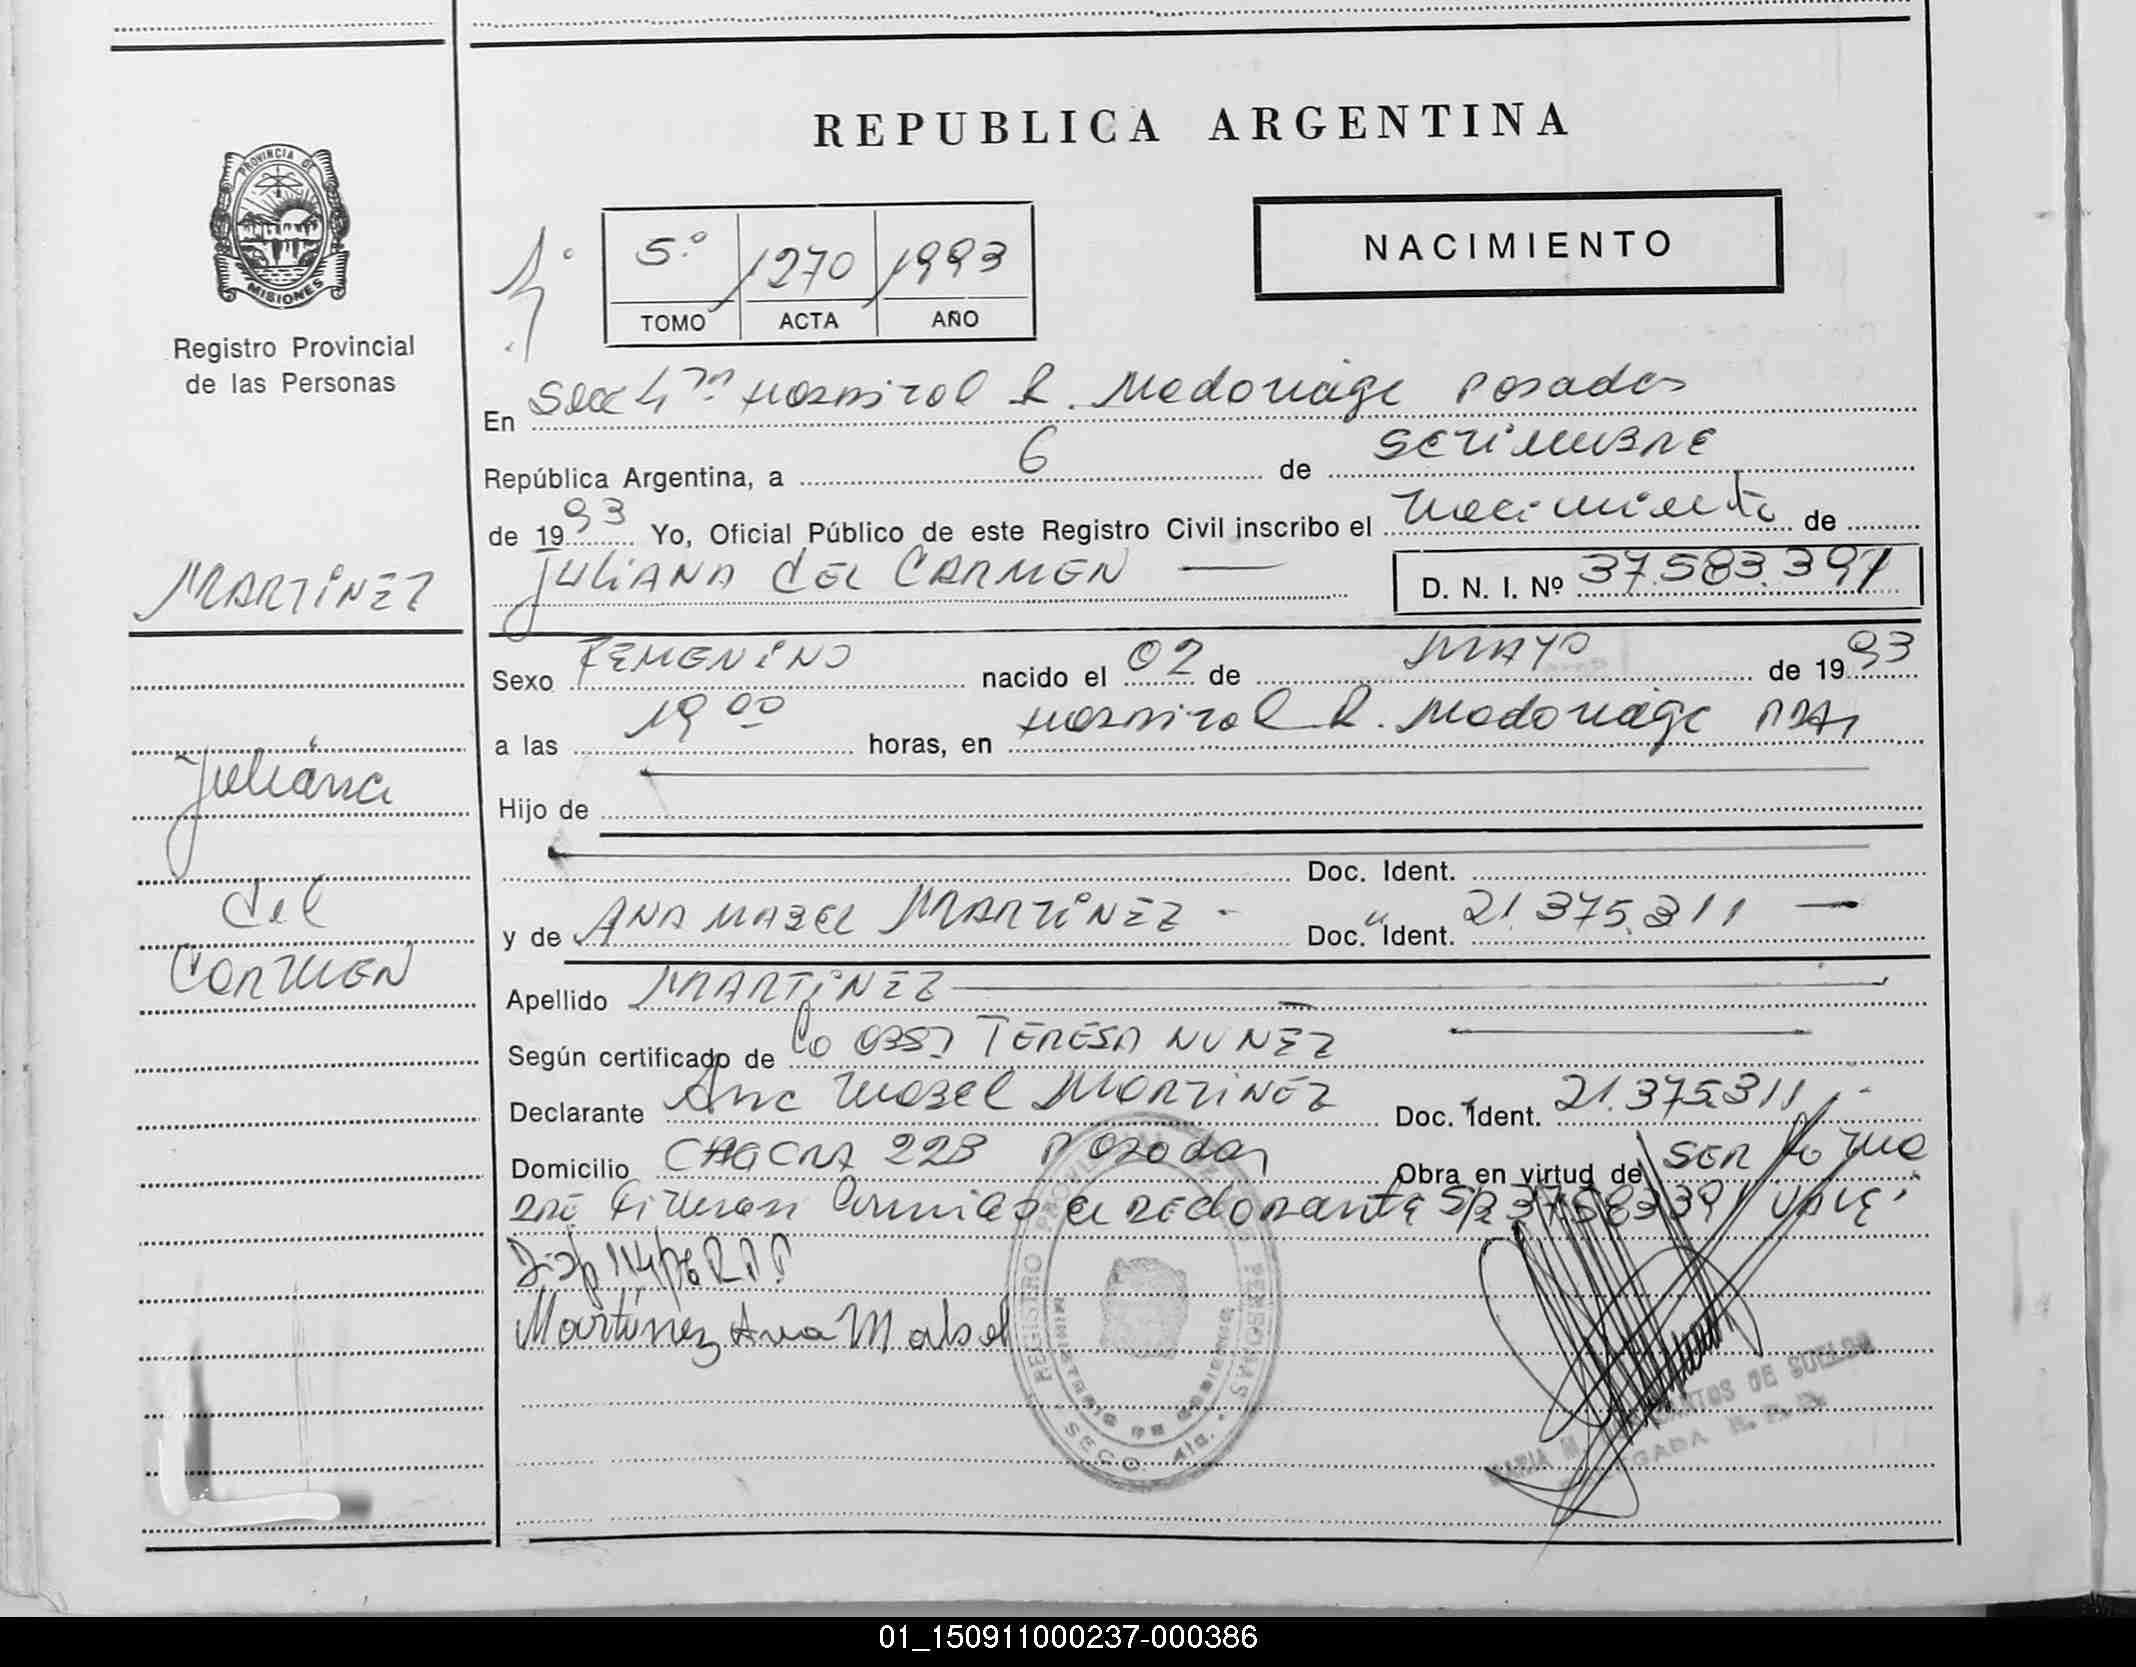 REPUBLICA ARGENTINA
PROVINCIA DE
MISIONES
Registro Provincial
de las Personas
5º 1270 1993
TOMO ACTA AÑO
NACIMIENTO
En Secc 4ta Hospital R. Madariaga Posadas
República Argentina, a 6 de SETIEMBRE
de 1993 Yo, Oficial Público de este Registro Civil inscribo el Nacimiento de
JULIANA DEL CARMEN D. N. I. Nº 37.583.391
MARTINEZ
Juliana
del
CARMEN
Sexo FEMENINO nacido el 02 de MAYO de 1993
a las 19 00 horas, en Hospital R. Madariaga PDAS
Hijo de
Doc. Ident.
y de ANA MABEL MARTINEZ - Doc. Ident. 21.375.311
Apellido MARTINEZ
Según certificado de Lo OBST TERESA NUÑEZ
Declarante Ana Mabel MARTINEZ Doc. Ident. 21.375311
Domicilio CHACRA 223 Posadas Obra en virtud de SER la madre
Firman Conmigo el declarante S/R 37583391 VALE
Disp 114/76 R.P.P
Martinez Ana Mabel
REGISTRO PROVINCIAL DE LAS PERSONAS
MINISTERIO DE GOBIERNO
SECC. 4ta.
MARIA M. DE SUELDO
DELEGADA R. P. P.
01_150911000237-000386